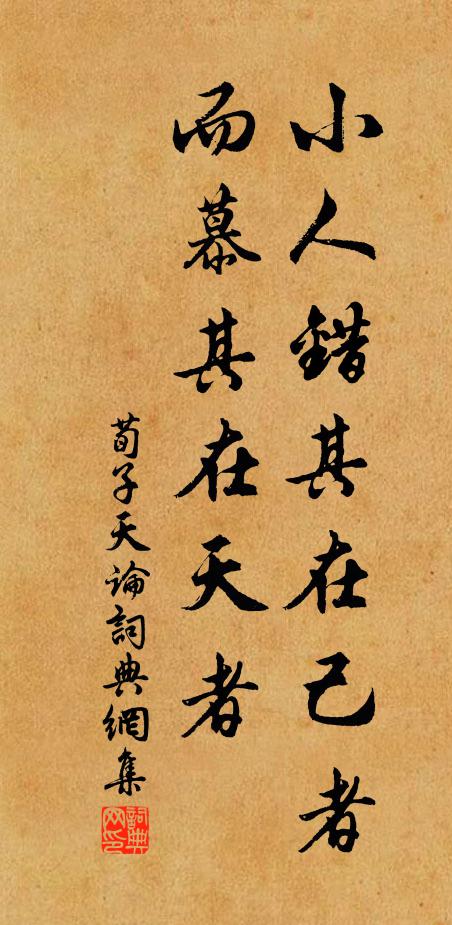 小人錯其在己者
而慕其在天者
荀子天論詞典網集
詞典网印